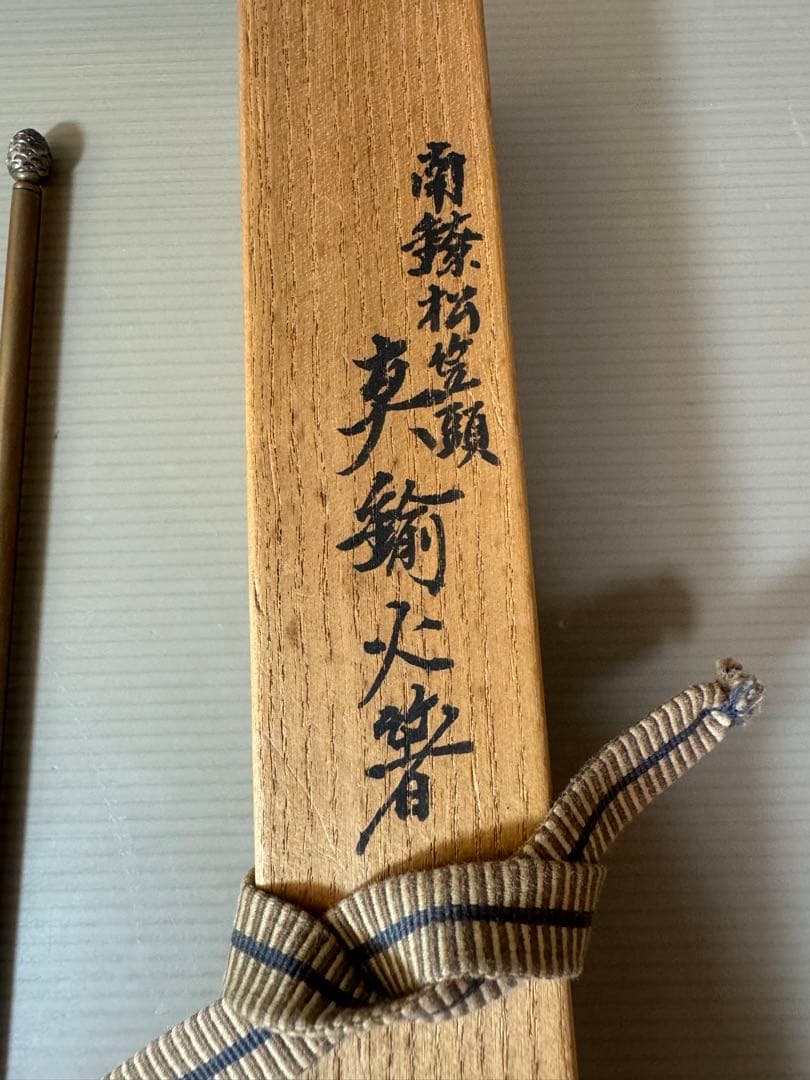 南鐐松笠頭
真鍮火箸